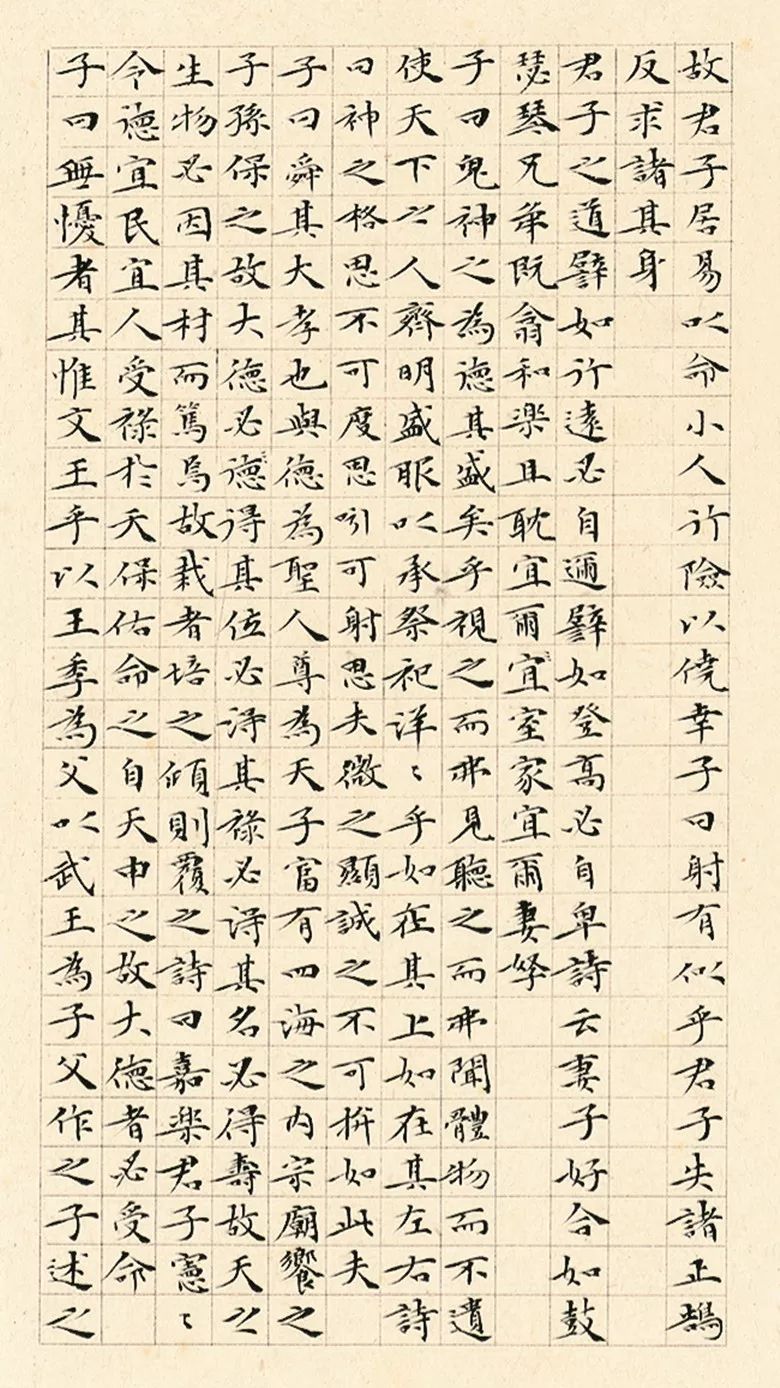 故君子居易以命小人行險以僥幸子曰射有似乎君子失諸正鵠
反求諸其身
君子之道譬如行遠必自邇譬如登高必自卑詩云妻子好合如鼓
瑟琴兄弟既翕和樂且耽宜爾宜室家宜爾妻孥
子曰鬼神之為德其盛矣乎視之而弗見聽之而弗聞體物而不遺
使天下之人齊明盛服以承祭祀洋〻乎如在其上如在其左右詩
曰神之格思不可度思矧可射思夫微之顯誠之不可揜如此夫
子曰舜其大孝也與德為聖人尊為天子富有四海之內宗廟饗之
子孫保之故大德必德得其位必得其祿必得其名必得壽故天之
生物必因其材而篤焉故栽者培之傾則覆之詩曰嘉樂君子憲〻
令德宜民宜人受祿於天保佑命之自天申之故大德者必受命
子曰無懮者其惟文王乎以王季為父以武王為子父作之子述之